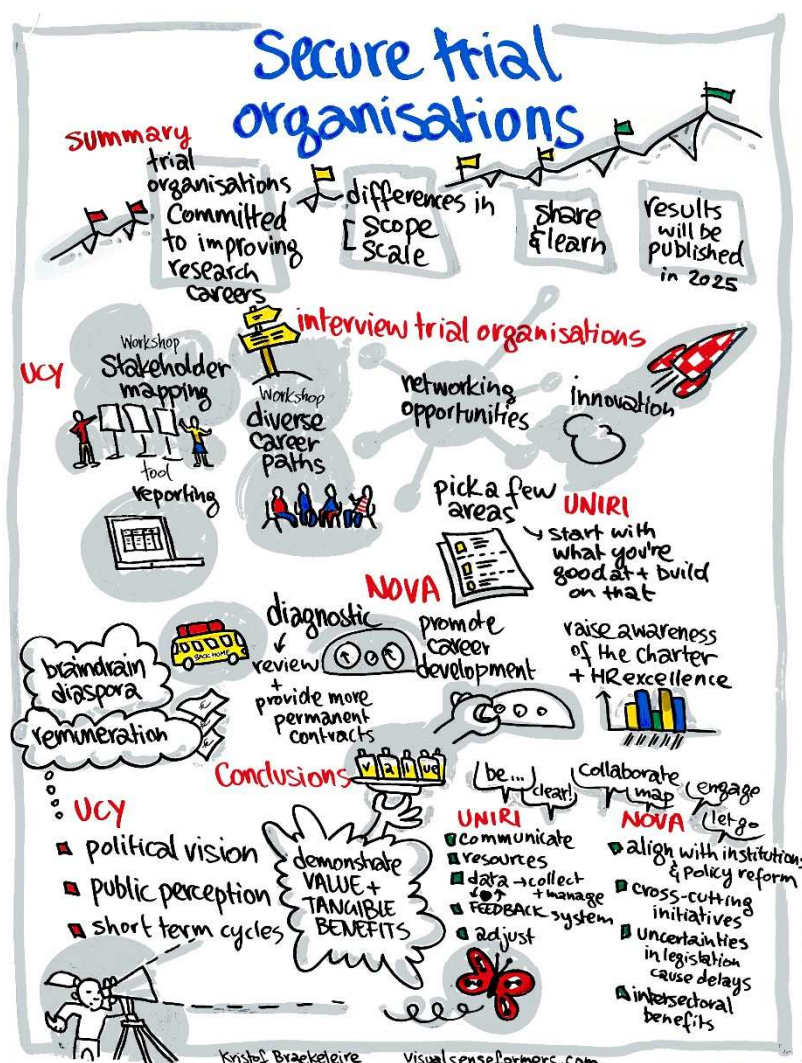 Secure trial
organisations
summary
trial
organisations
Committed
to improving
research
careers
differences in
scope
scale
share
& learn
results
will be
published
in 2025
interview trial organisations
UCY
Workshop
Stakeholder
mapping
tool
reporting
Workshop
diverse
career
paths
networking
opportunities
innovation
pick a few
areas
UNIRI
start with
what you're
good at + build
on that
NOVA
diagnostic
review
+
provide more
permanent
contracts
promote
career
development
raise awareness
of the charter
+ HR excellence
BACK HOME
braindrain
diaspora
remuneration
Conclusions
v a l ue
be...
clear!
collaborate
map
engage
let go
UCY
political vision
public perception
short term cycles
demonstrate
VALUE +
TANGIBLE
BENEFITS
UNIRI
communicate
resources
data → collect
+ manage
FEEDBACK system
adjust
NOVA
align with institutions
& policy reform
cross-cutting
initiatives
uncertainties
in legislation
cause delays
intersectoral
benefits
Kristof Braekeleire visualsenseformers.com